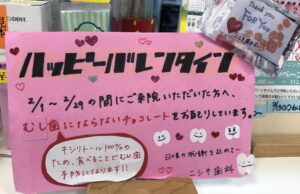 CHDENT.
Thank You
For You
ハッピーバレンタイン
2/1~2/29の間にご来院いただいた方へ、
むし歯にならないチョコレートをお配りしています。
キシリトール100%の
ため、食べることでむし歯
予防になります!!
日頃の感謝を込めて…
ニシキ歯科